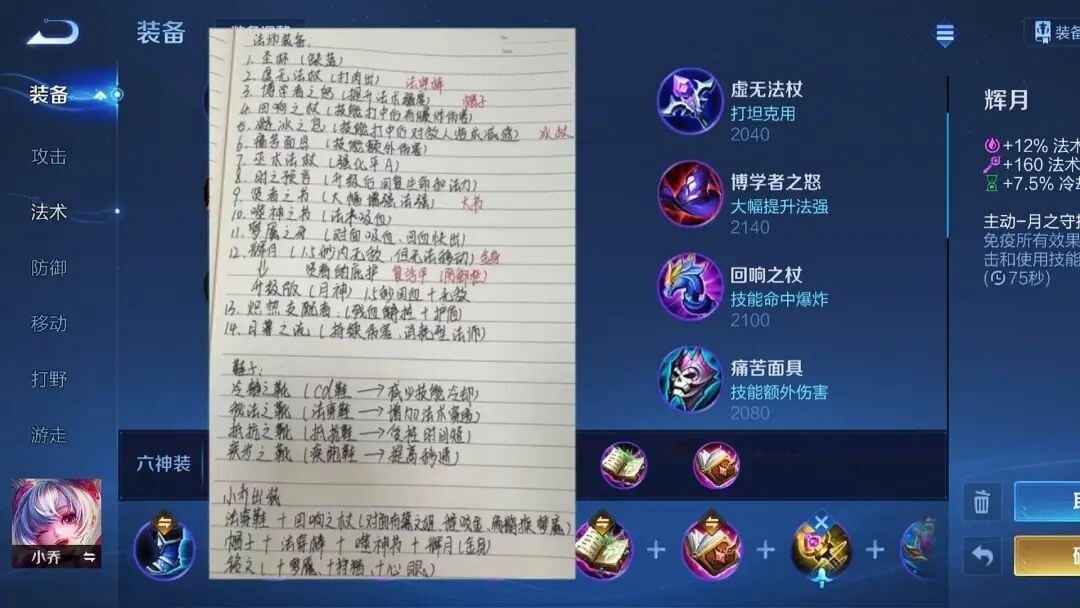 装备
装备
攻击
法术
防御
移动
打野
游走
小乔
法师装备:
1. 圣杯 (缺蓝)
2. 虚无法杖 (打肉出) 法穿棒
3. 博学者之怒 (提升法术强度) 帽子
4. 回响之杖 (技能打中后有爆炸伤害)
5. 凝冰之息 (技能打中后对敌人造成减速) 冰杖
6. 痛苦面具 (技能额外伤害)
7. 巫术法杖 (强化平A)
8. 时之预言 (升级后回复生命和法力)
9. 贤者之书 (大幅增强法强) 大书
10. 噬神之书 (法术吸血)
11. 梦魇之牙 (对面吸血、回血快出)
12. 辉月 (1.5秒内无敌,但无法移动) 金身
↓ 贤者的庇护 复活甲
升级版 (月神) 1.5秒回血+无敌
13. 炽热支配者 (残血解控+护盾)
14. 日暮之流 (持续伤害、消耗型法师)
鞋子:
冷静之靴 (CD鞋 → 减少技能冷却)
秘法之靴 (法穿鞋 → 增加法术穿透)
抵抗之靴 (抵抗鞋 → 受控时间短)
疾步之靴 (疾跑鞋 → 提高移速)
小乔出装
法穿鞋 + 回响之杖 (对面有
帽子 + 法穿棒 + 噬神书 + 辉月 (金身)
铭文 (+梦魇,+狩猎,+心眼)
虚无法杖
打坦克用
2040
博学者之怒
大幅提升法强
2140
回响之杖
技能命中爆炸
2100
痛苦面具
技能额外伤害
2080
六神装
装备
辉月
+12% 法术
+160 法术
+7.5% 冷却
主动-月之守护
免疫所有效果
击和使用技能
(75秒)